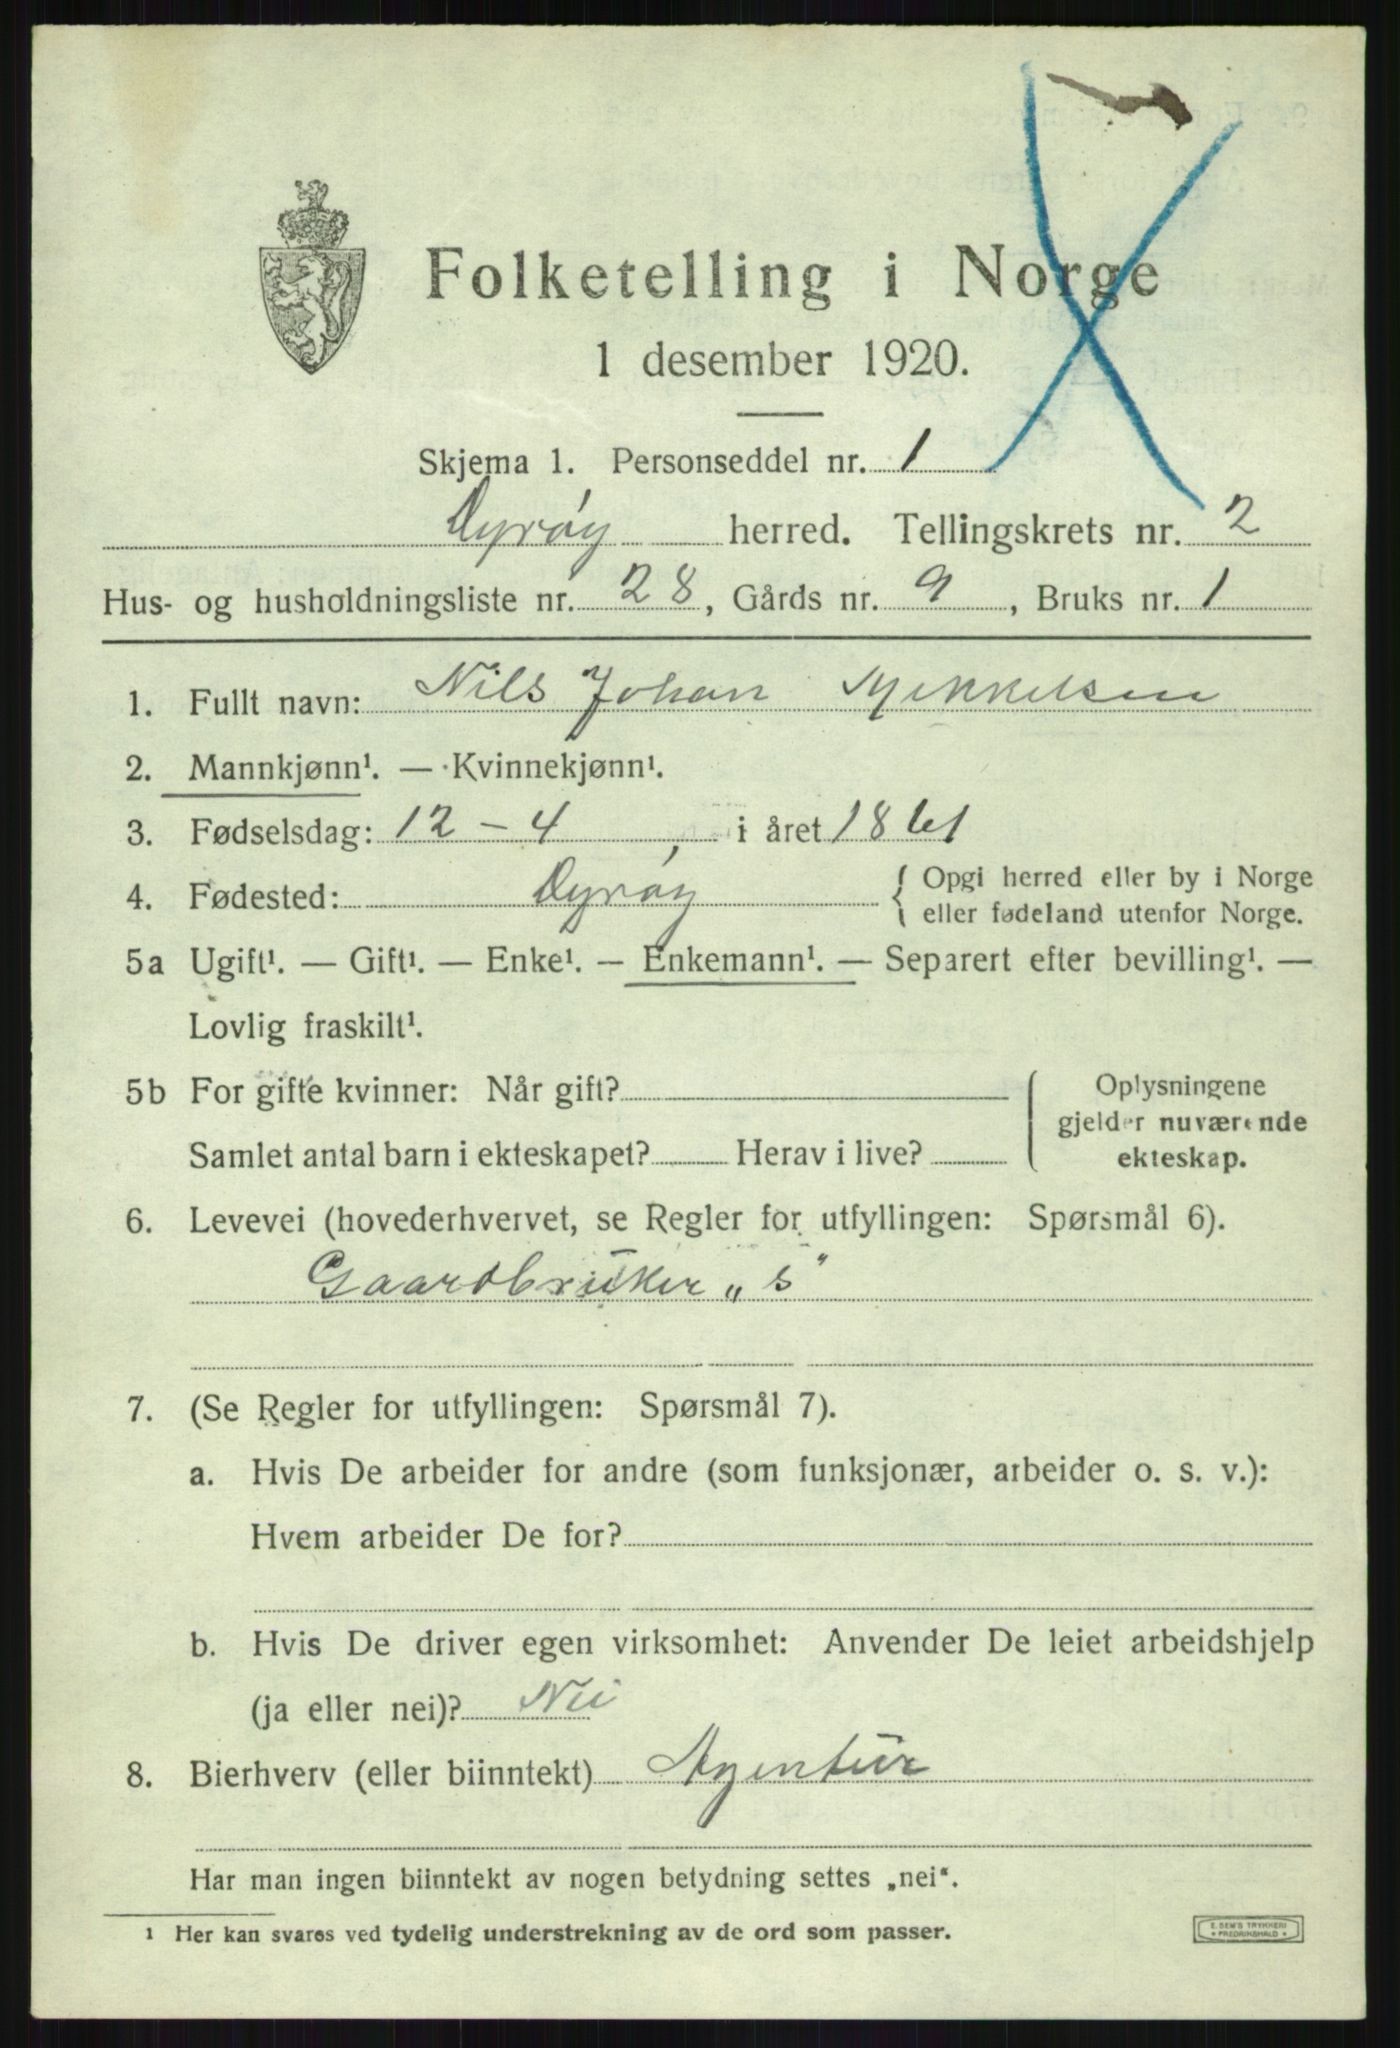 Folketelling i Norge
1 desember 1920.
Skjema 1. Personseddel nr. 1
Dyrøy herred. Tellingskrets nr. 2
Hus- og husholdningsliste nr. 28, Gårds nr. 9, Bruks nr. 1
1. Fullt navn: Nils Johan Mikkelsen
2. Mannkjønn¹. — Kvinnekjønn¹.
3. Fødselsdag: 12 - 4, i året 1861
4. Fødested: Dyrøy { Opgi herred eller by i Norge
eller fødeland utenfor Norge.
5a Ugift¹. — Gift¹. — Enke¹. — Enkemann¹. — Separert efter bevilling¹. —
Lovlig fraskilt¹.
5b For gifte kvinner: Når gift?
Samlet antal barn i ekteskapet? Herav i live?
Oplysningene
gjelder nuværende
ekteskap.
6. Levevei (hovederhvervet, se Regler for utfyllingen: Spørsmål 6).
Gaardbruker „s"
7. (Se Regler for utfyllingen: Spørsmål 7).
a. Hvis De arbeider for andre (som funksjonær, arbeider o. s. v.):
Hvem arbeider De for?
b. Hvis De driver egen virksomhet: Anvender De leiet arbeidshjelp
(ja eller nei)? Nei
8. Bierhverv (eller biinntekt) Agentur
Har man ingen biinntekt av nogen betydning settes „nei“.
1 Her kan svares ved tydelig understrekning av de ord som passer.
E. SEM'S TRYKKERI
FREDRIKSHALD